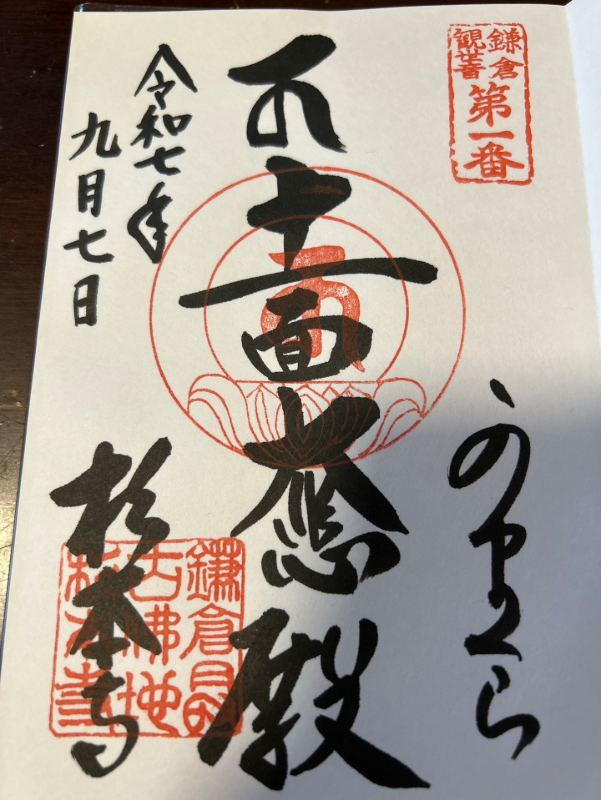 鎌倉
観世音
第一番
十一面大悲殿
令和七年
九月七日
杉本寺
鎌倉最
古佛地
杉本寺